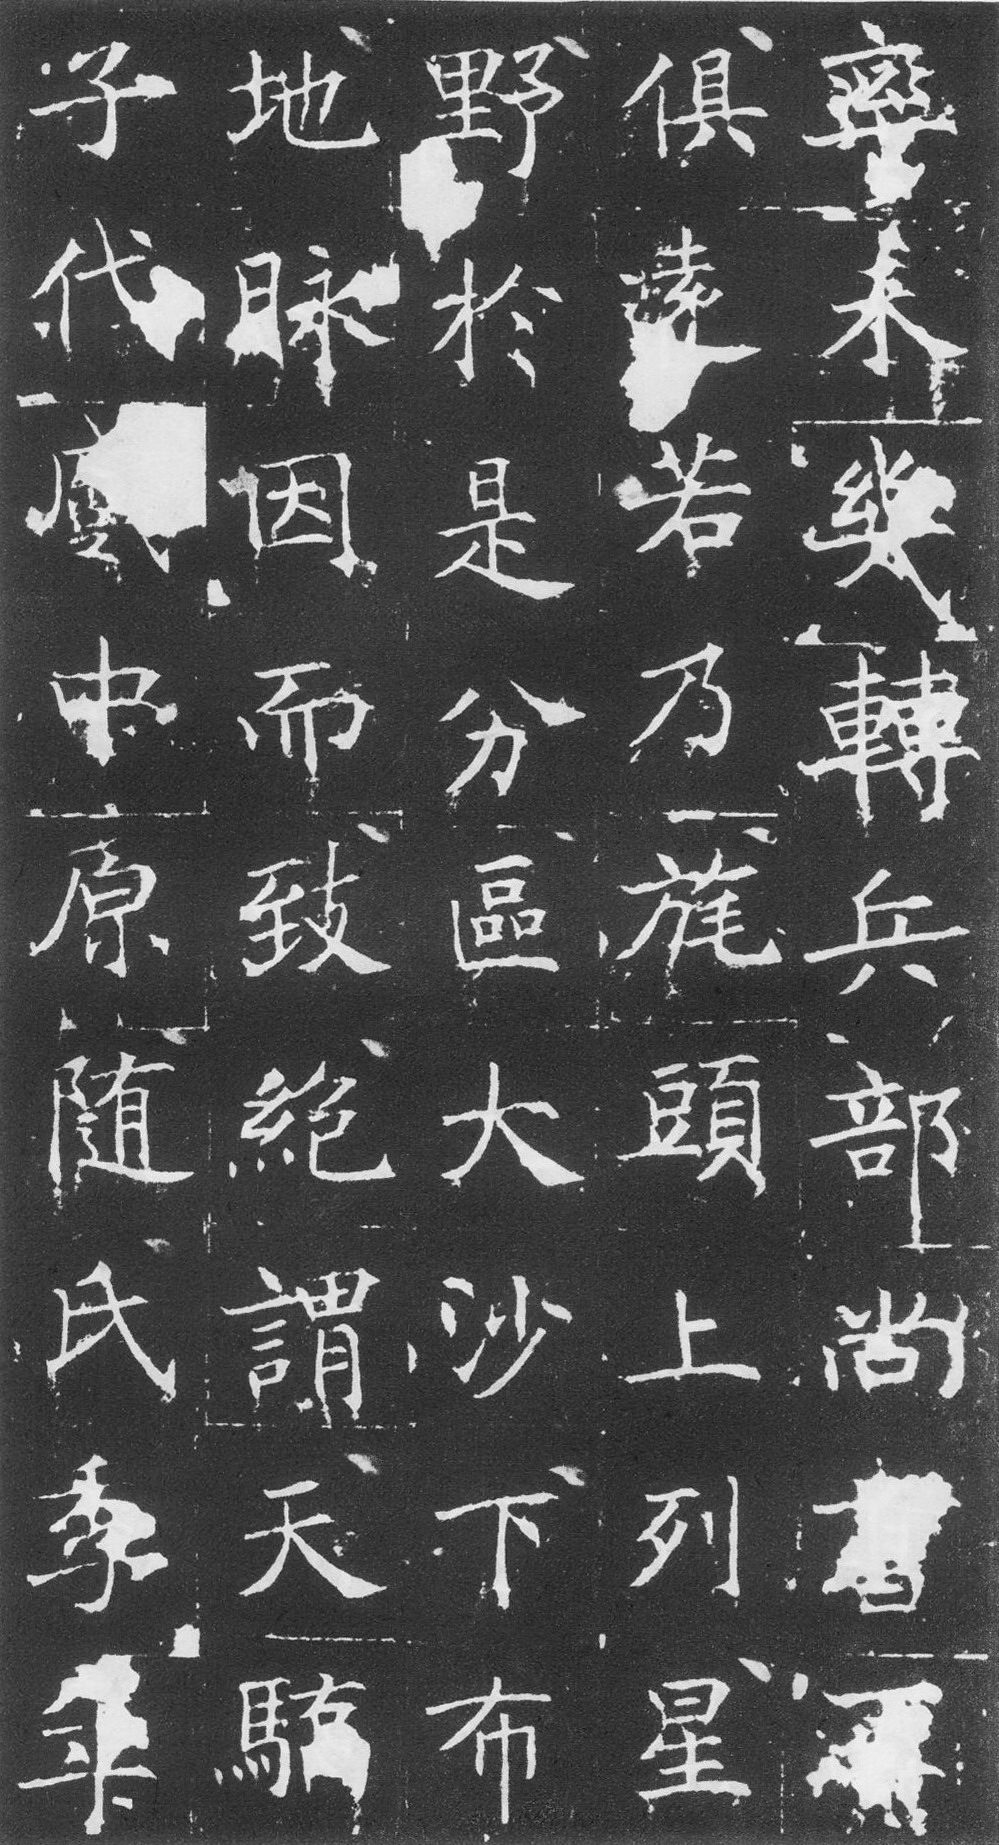 齊未幾轉兵部尚書
俱遠若乃旄頭上列星
野於是分區大沙下布
地脉因而致絕謂天驕
子代處中原随氏季年